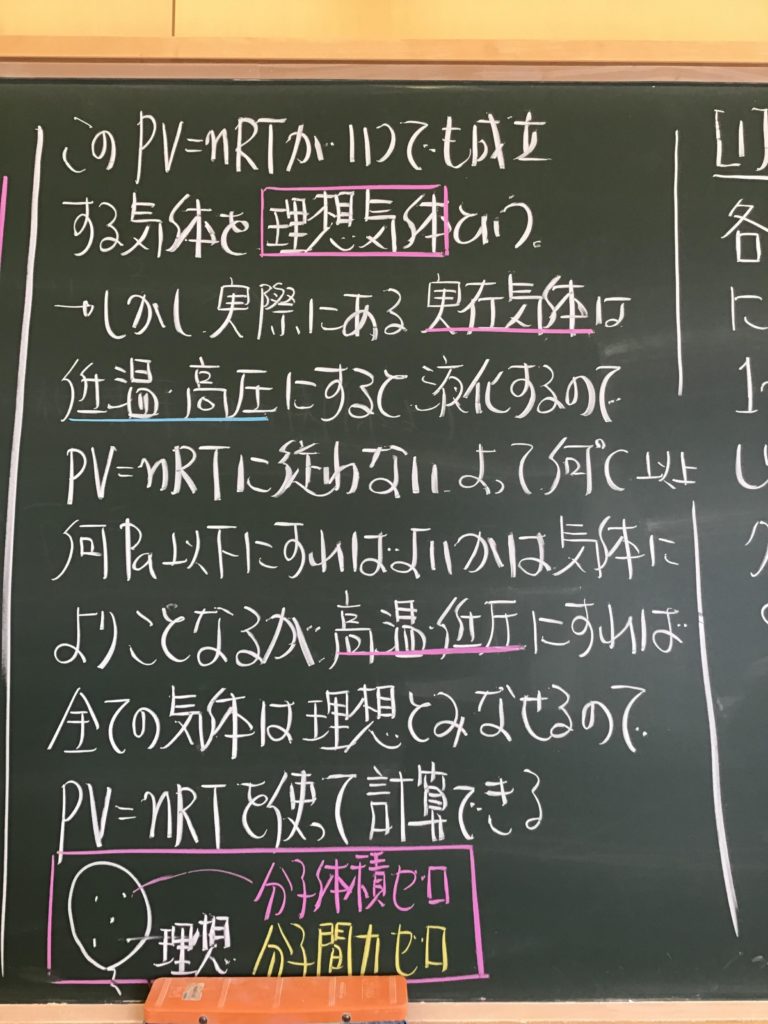 このPV=nRTがいつでも成立
する気体を理想気体という。
→しかし実際にある実在気体は
低温・高圧にすると液化するので
PV=nRTに従わない よって何℃以上
何Pa以下にすればよいかは気体に
よりことなるが高温・低圧にすれば
全ての気体は理想とみなせるので
PV=nRTを使って計算できる
分子体積ゼロ
理想 分子間力ゼロ
[1]
各
に
1
し